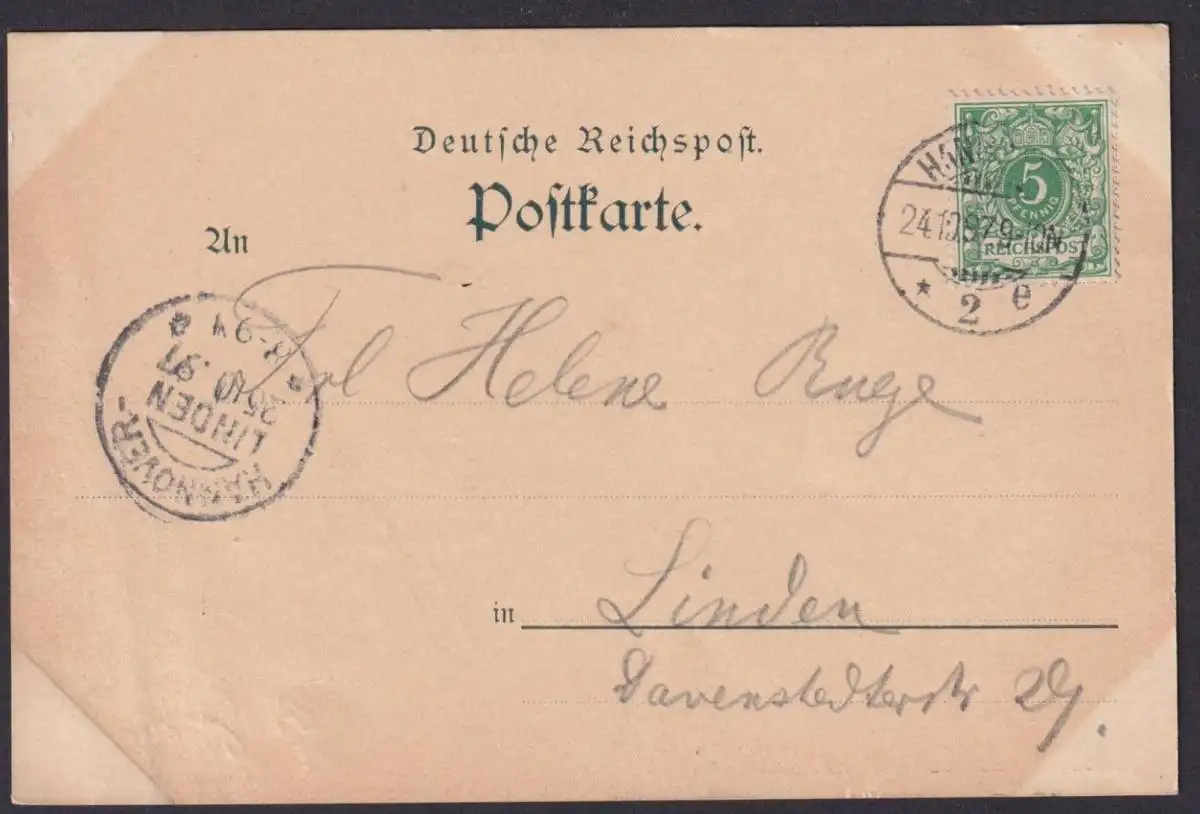 Deutsche Reichspost.
Postkarte.
5
PFENNIG
REICHSPOST
24.10.97.9-10N.
* 2 e
An
HANNOVER-
LINDEN
25.10.97
8-9V
Frl Helene Ruge
in Linden
Davenstedterstr